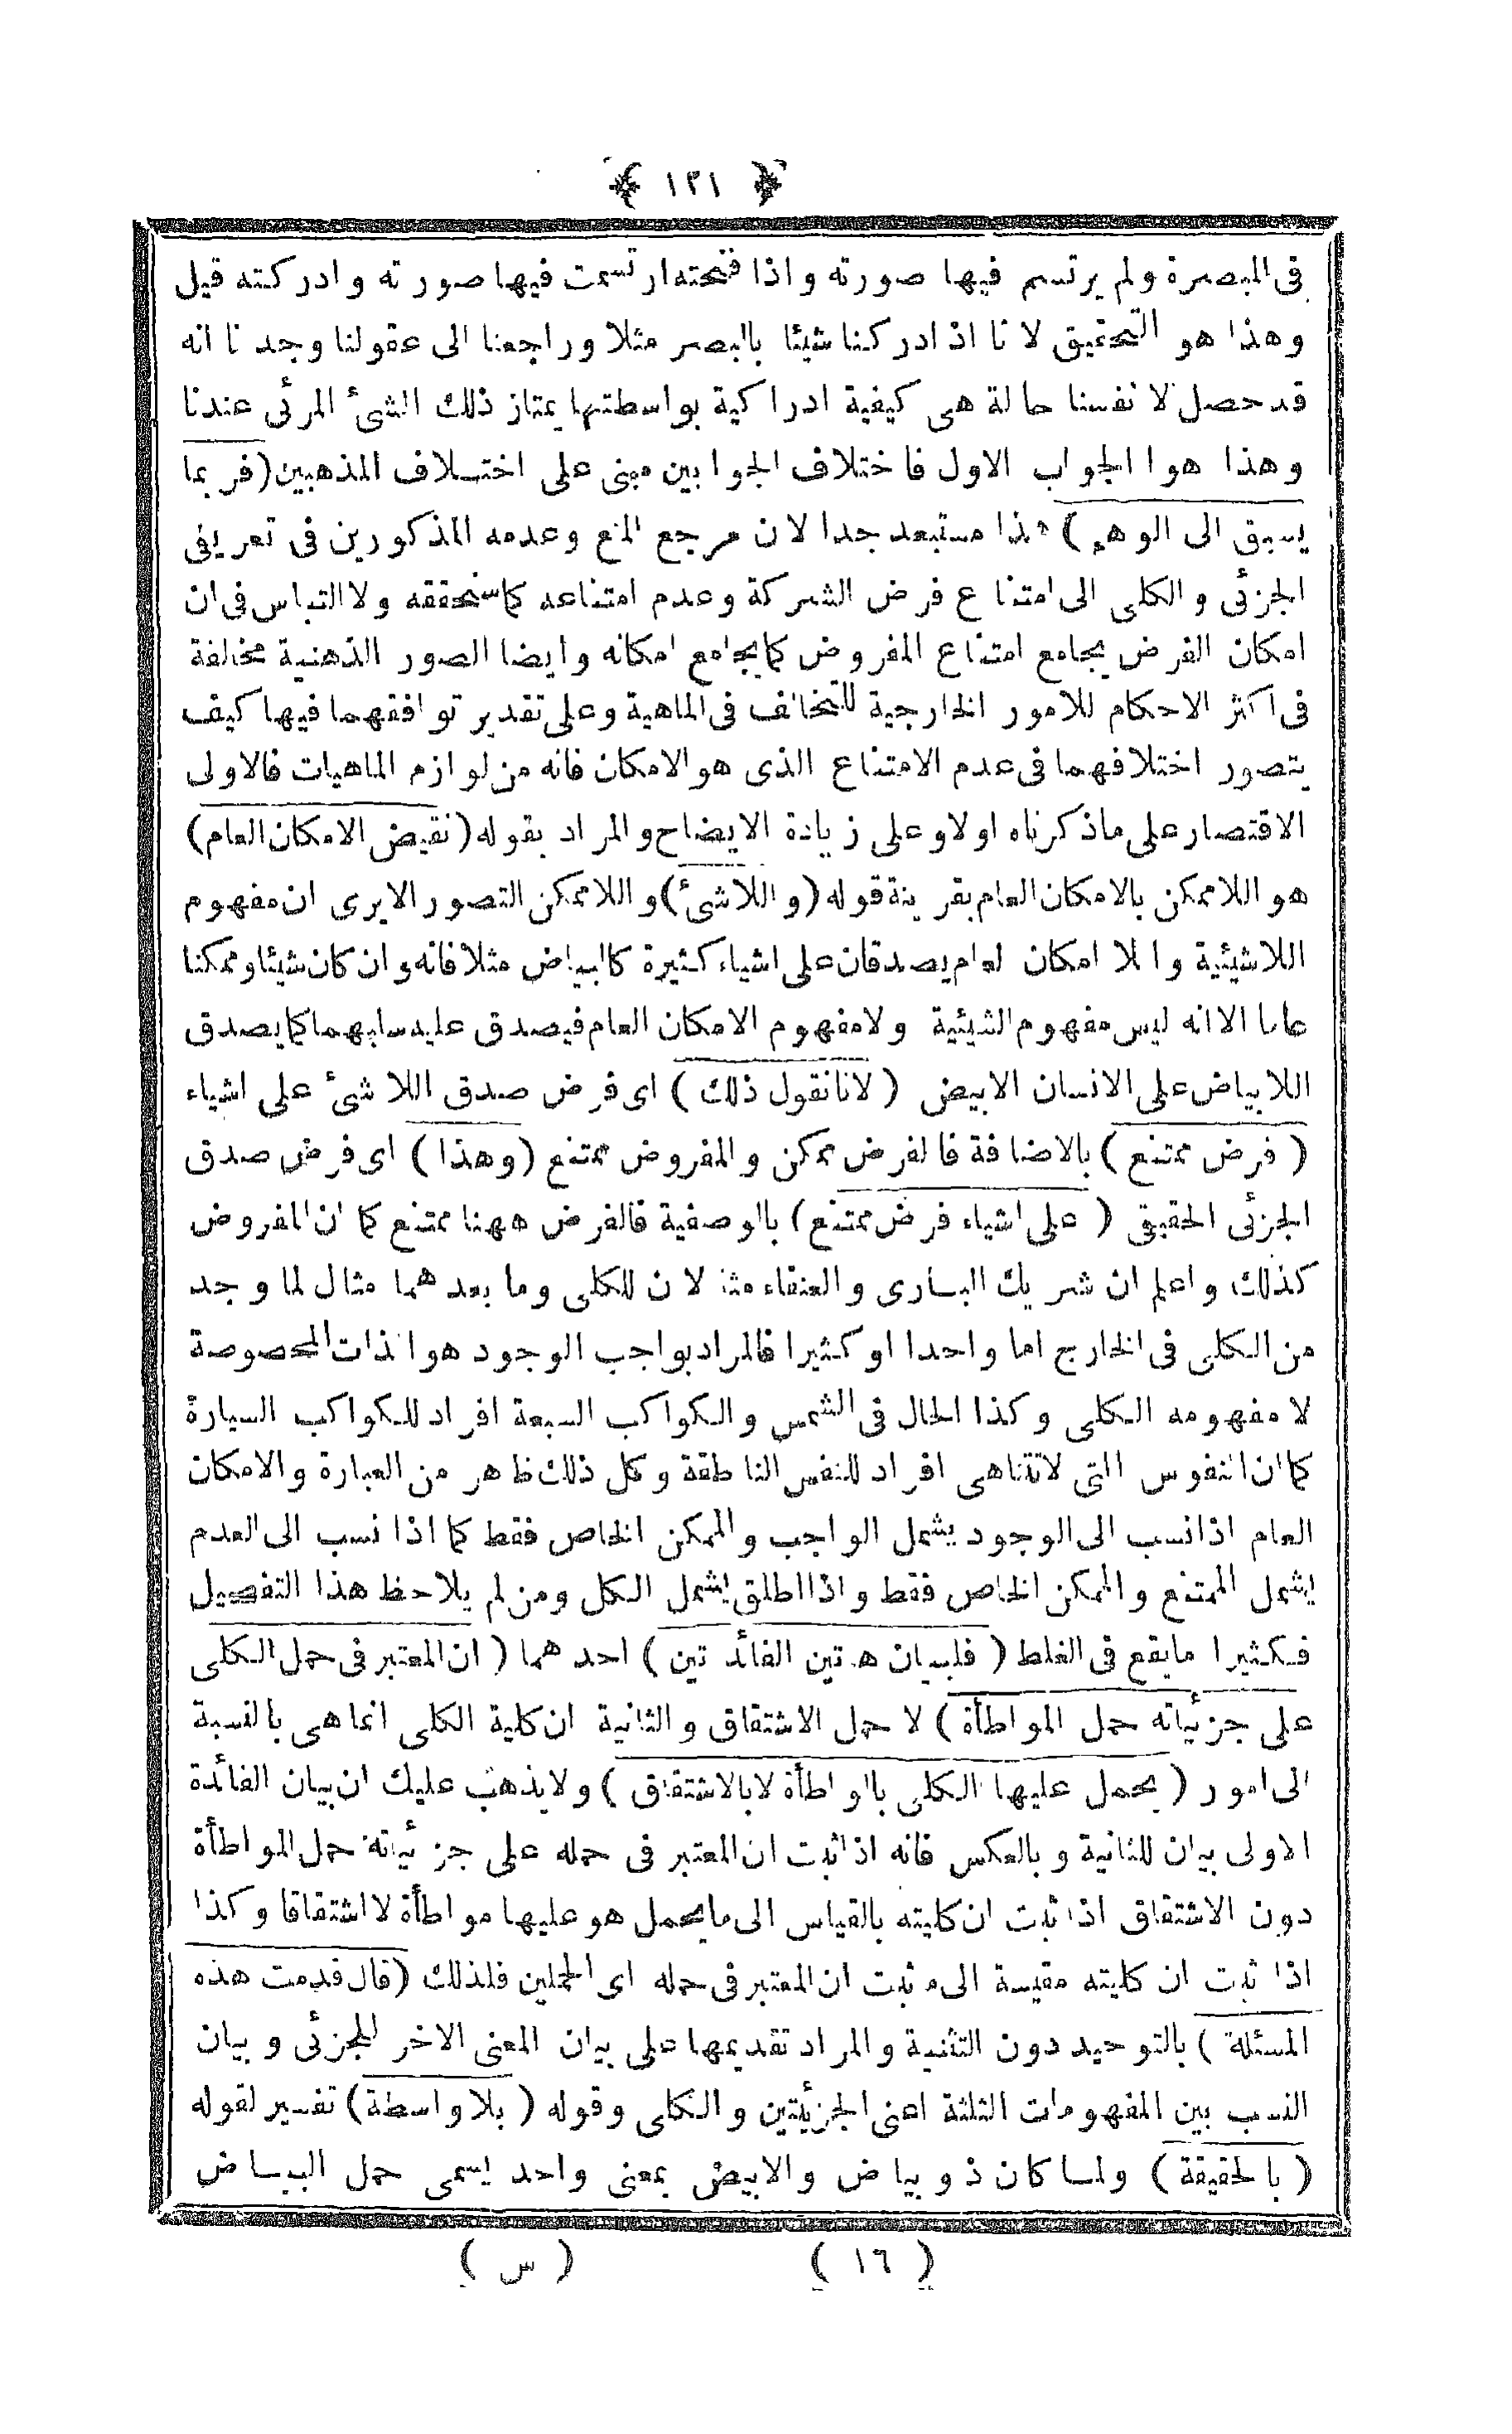 ﴿ ١٢١ ﴾
فى المبصرة ولم يرتسم فيها صورته واذا فتحته ارتسمت فيها صورته وادركته قيل
وهذا هو التحقيق لانا اذا ادركنا شيئا بالبصر مثلا وراجعنا الى عقولنا وجدنا انه
قد حصل لانفسنا حالة هى كيفية ادراكية بواسطتها يمتاز ذلك الشئ المرئى عندنا
وهذا هو الجواب الاول فاختلاف الجوابين مبنى على اختلاف المذهبين (فربما
يسبق الى الوهم) هذا مستبعد جدا لان مرجع المنع وعدمه المذكورين فى تعريفى
الجزئى والكلى الى امتناع فرض الشركة وعدم امتناعه كما سنحققه ولا التباس فى ان
امكان الفرض يجامع امتناع المفروض كما يجامع امكانه وايضا الصور الذهنية مخالفة
فى اكثر الاحكام للامور الخارجية للتخالف فى الماهية وعلى تقدير توافقهما فيها كيف
يتصور اختلافهما فى عدم الامتناع الذى هو الامكان فانه من لوازم الماهيات فالاولى
الاقتصار على ماذكرناه اولا وعلى زيادة الايضاح والمراد بقوله (نقيض الامكان العام)
هو اللاممكن بالامكان العام بقرينة قوله (واللاشئ) واللاممكن التصور الايرى ان مفهوم
اللاشيئية واللا امكان العام يصدقان على اشياء كثيرة كالبياض مثلا فانه وان كان شيئا وممكنا
عاما الا انه ليس مفهوم الشيئية ولا مفهوم الامكان العام فيصدق عليه سلبهما كما يصدق
اللابياض على الانسان الابيض (لانا نقول ذلك) اى فرض صدق اللاشئ على اشياء
(فرض ممتنع) بالاضافة فالفرض ممكن والمفروض ممتنع (وهذا) اى فرض صدق
الجزئى الحقيقى (على اشياء فرض ممتنع) بالوصفية فالفرض ههنا ممتنع كما ان المفروض
كذلك واعلم ان شريك البارى والعنقاء مثالان للكلى وما بعدهما مثال لما وجد
من الكلى فى الخارج اما واحدا او كثيرا فالمراد بواجب الوجود هو الذات المخصوصة
لا مفهومه الكلى وكذا الحال فى الشمس والكواكب السبعة افراد للكواكب السيارة
كما ان النفوس التى لاتتناهى افراد للنفس الناطقة وكل ذلك ظاهر من العبارة والامكان
العام اذا نسب الى الوجود يشمل الواجب والممكن الخاص فقط كما اذا نسب الى العدم
يشمل الممتنع والممكن الخاص فقط واذا اطلق يشمل الكل ومن لم يلاحظ هذا التفصيل
فكثيرا مايقع فى الغلط (فلبيان هتين الفائدتين) احدهما (ان المعتبر فى حمل الكلى
على جزئياته حمل المواطأة) لا حمل الاشتقاق والثانية ان كلية الكلى انماهى بالنسبة
الى امور (يحمل عليها الكلى بالمواطأة لابالاشتقاق) ولايذهب عليك ان بيان الفائدة
الاولى بيان للثانية وبالعكس فانه اذا ثبت ان المعتبر فى حمله على جزئياته حمل المواطأة
دون الاشتقاق اذا ثبت ان كليته بالقياس الى مايحمل هو عليها مواطأة لا اشتقاقا وكذا
اذا ثبت ان كليته مقيسة الى م ثبت ان المعتبر فى حمله اى الحملين فلذلك (قال قدمت هذه
المسئلة) بالتوحيد دون التثنية والمراد تقديمها على بيان المعنى الاخر للجزئى وبيان
النسب بين المفهومات الثلثة اعنى الجزئيتين والكلى وقوله (بلا واسطة) تفسير لقوله
(بالحقيقة) ولما كان ذو بياض والابيض بمعنى واحد يسمى حمل البياض
(١٦) (س)